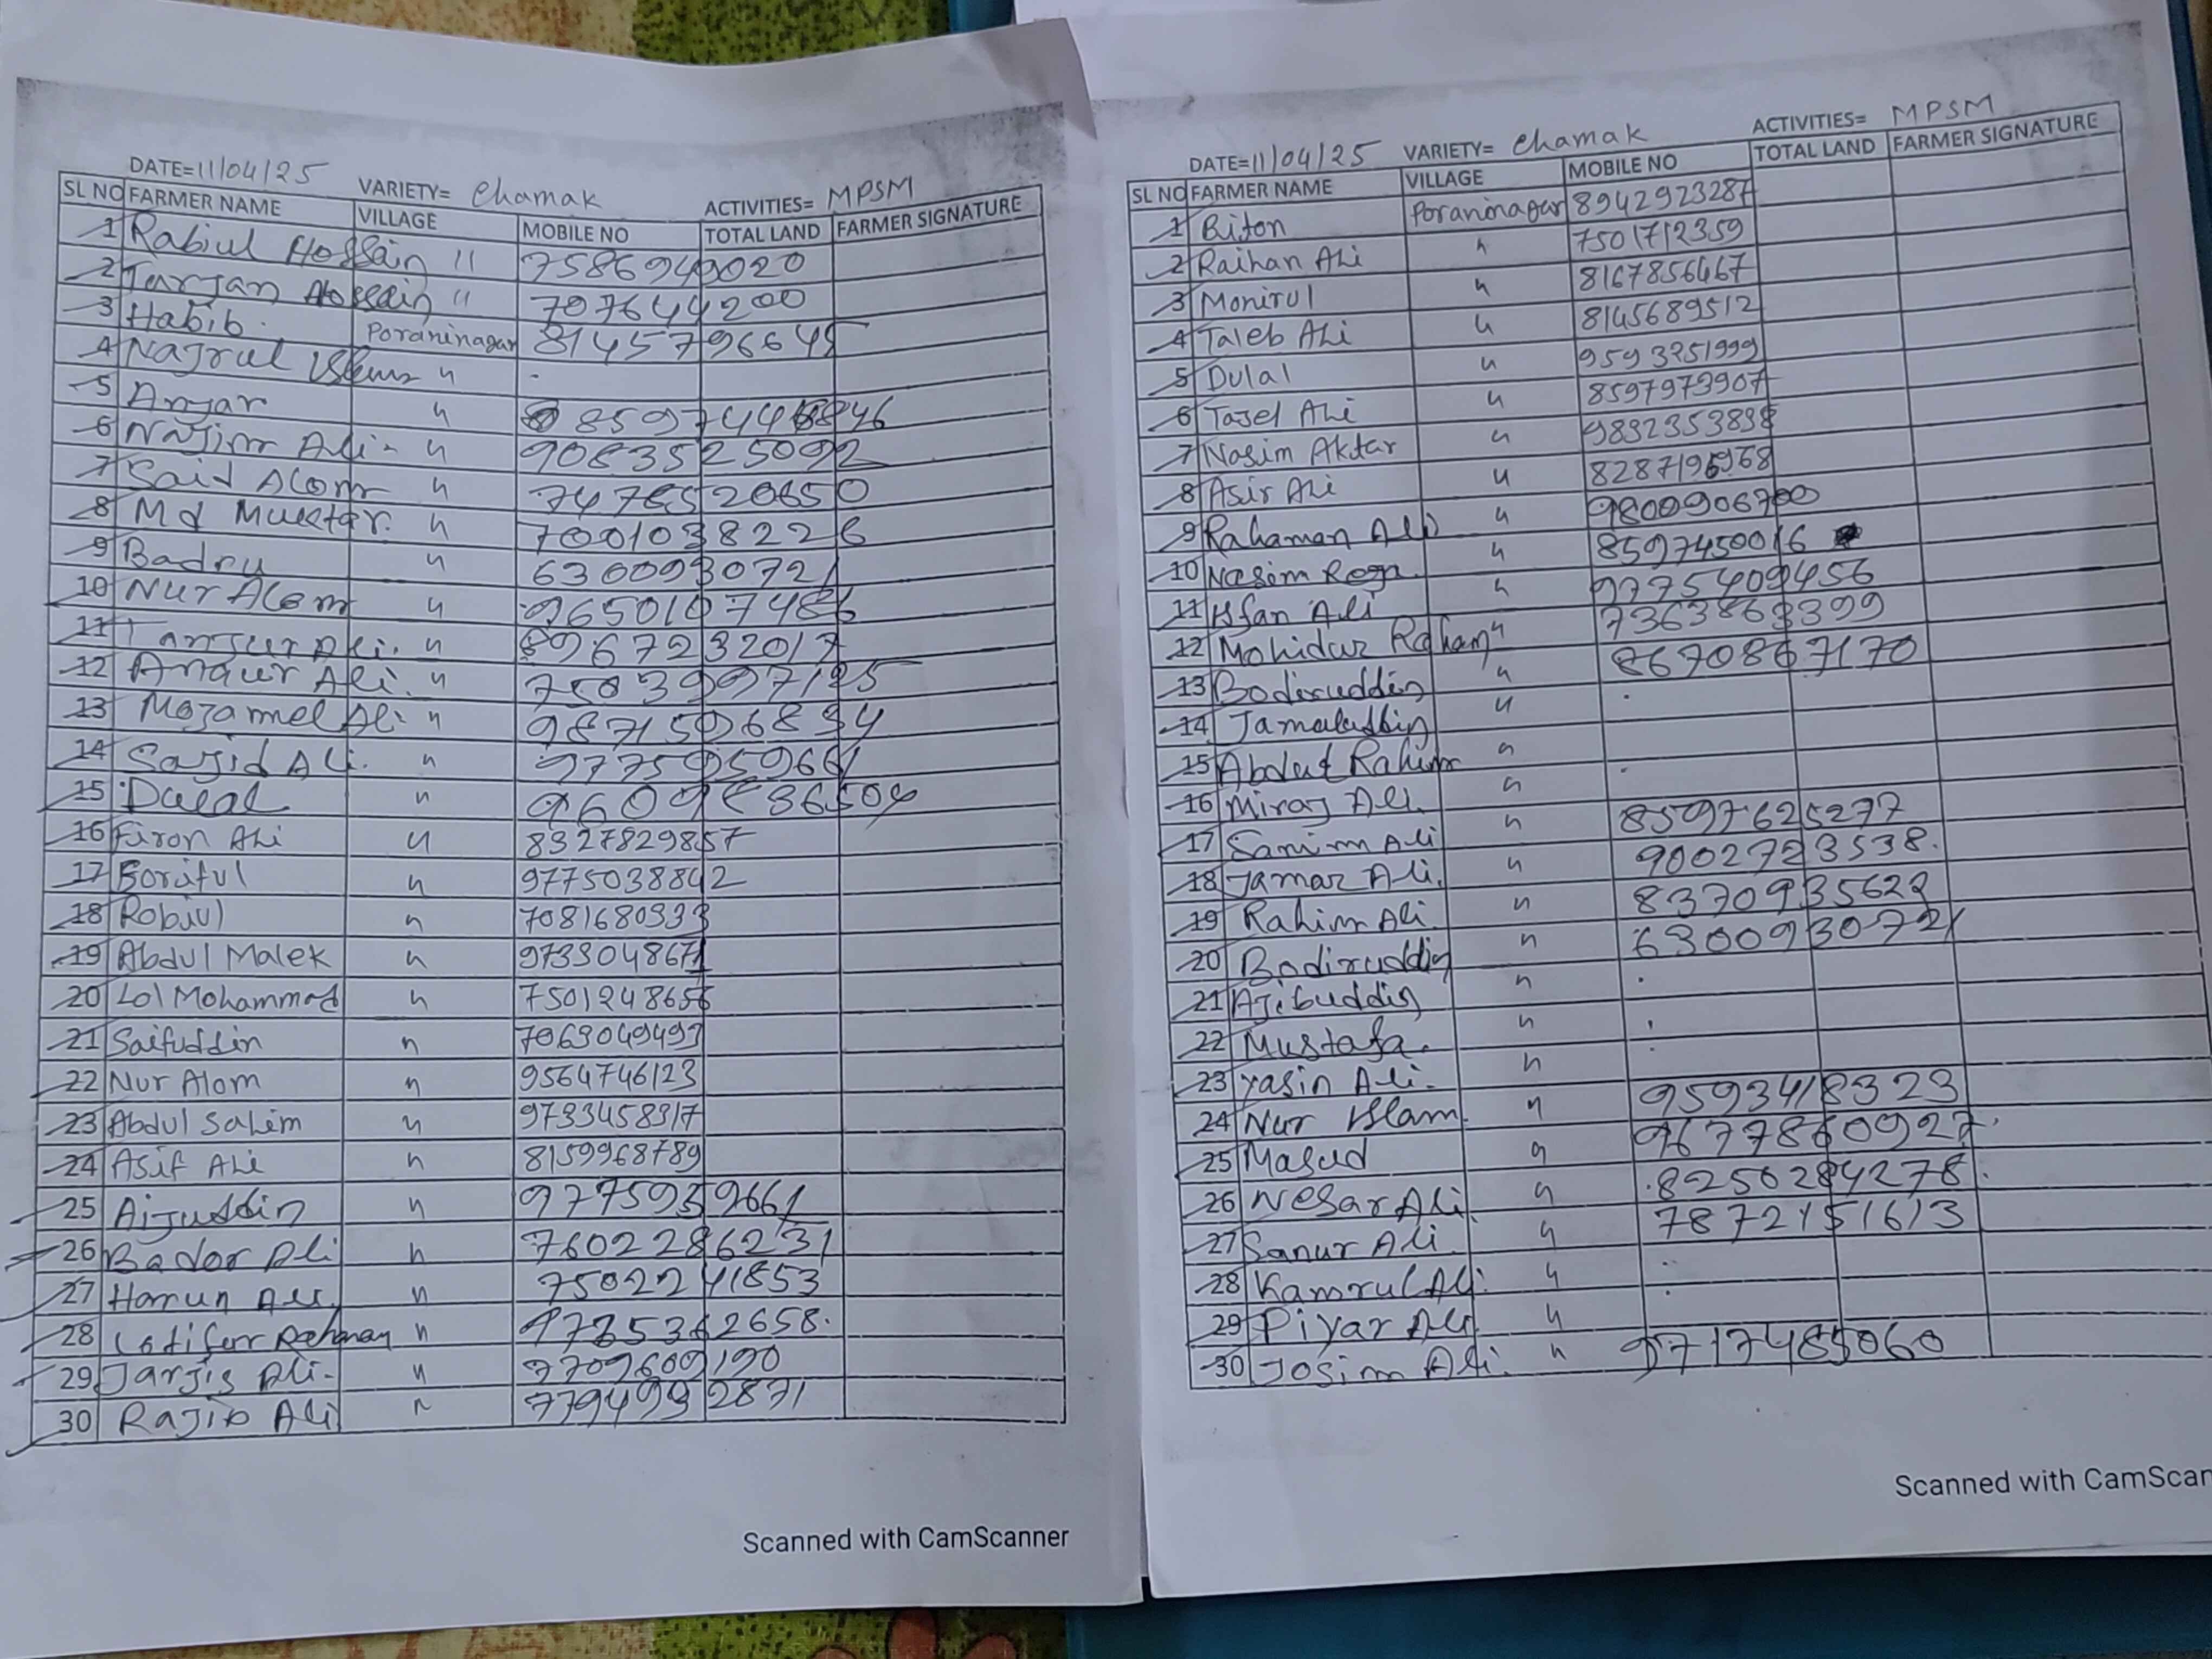 DATE=11/04/25 VARIETY= Chamak ACTIVITIES= MPSM
SL NO FARMER NAME VILLAGE MOBILE NO TOTAL LAND FARMER SIGNATURE
1 Rabiul Hossain 11 7586949020
2 Tarjan Hossain " 7076449200
3 Habib. Poraninagar 8145796645
4 Najrul Islam "
5 Anjar "
6 Najim Ali - " 9083525092
7 Said Alom " 7476520650
8 Md Muktar. " 7001038226
9 Badru " 6300930721
10 Nur Alom " 9650107486
11 Tanjur Ali. " 8967232017
12 Anaur Ali. " 7503997195
13 Mozamel Ali " 9871506894
14 Sajid Ali. " 9775959661
15 Dulal "
16 Firon Ali " 8327829857
17 Soriful " 9775038842
18 Robiul " 7081680333
19 Abdul Malek " 9733048671
20 Lol Mohammad " 7501248656
21 Saifuddin " 7063049493
22 Nur Alom " 9564746123
23 Abdul Salim " 9733458317
24 Asif Ali " 8159968789
25 Aijuddin " 9775959661
26 Bador Ali " 7602286231
27 Harun Ali. " 7502241853
28 Latifur Rahman "
29 Jarjis Ali- "
30 Rajib Ali " 7794992871
Scanned with CamScanner
DATE=11/04/25 VARIETY= Chamak ACTIVITIES= MPSM
SL NO FARMER NAME VILLAGE MOBILE NO TOTAL LAND FARMER SIGNATURE
1 Biton Poraninagar 8942923287
2 Raihan Ali " 7501712359
3 Monirul " 8167856467
4 Taleb Ali " 8145689512
5 Dulal " 9593251999
6 Tajel Ali " 8597973907
7 Nasim Aktar " 9832353838
8 Asir Ali " 8287196968
9 Rahaman Ali " 9800906700
10 Nasim Reja. " 8597450016
11 Isfan Ali " 9775409456
12 Mohidur Raham " 7363863399
13 Bodiruddin " 8670867170
14 Jamaluddin "
15 Abdul Rahim "
16 Miraj Ali. "
17 Sanim Ali " 8597625277
18 Jamar Ali. " 9002723538.
19 Rahim Ali. " 8370935623
20 Bodiruddin " 6300930721
21 Ajibuddin "
22 Mustafa. "
23 Yasin Ali. "
24 Nur Islam. " 9593418323
25 Masud " 9677860927.
26 Nesar Ali. " 8250284278.
27 Sanur Ali " 7872151613
28 Kamrul Ali. "
29 Piyar Ali "
30 Josim Ali. " 9717485060
Scanned with CamScan